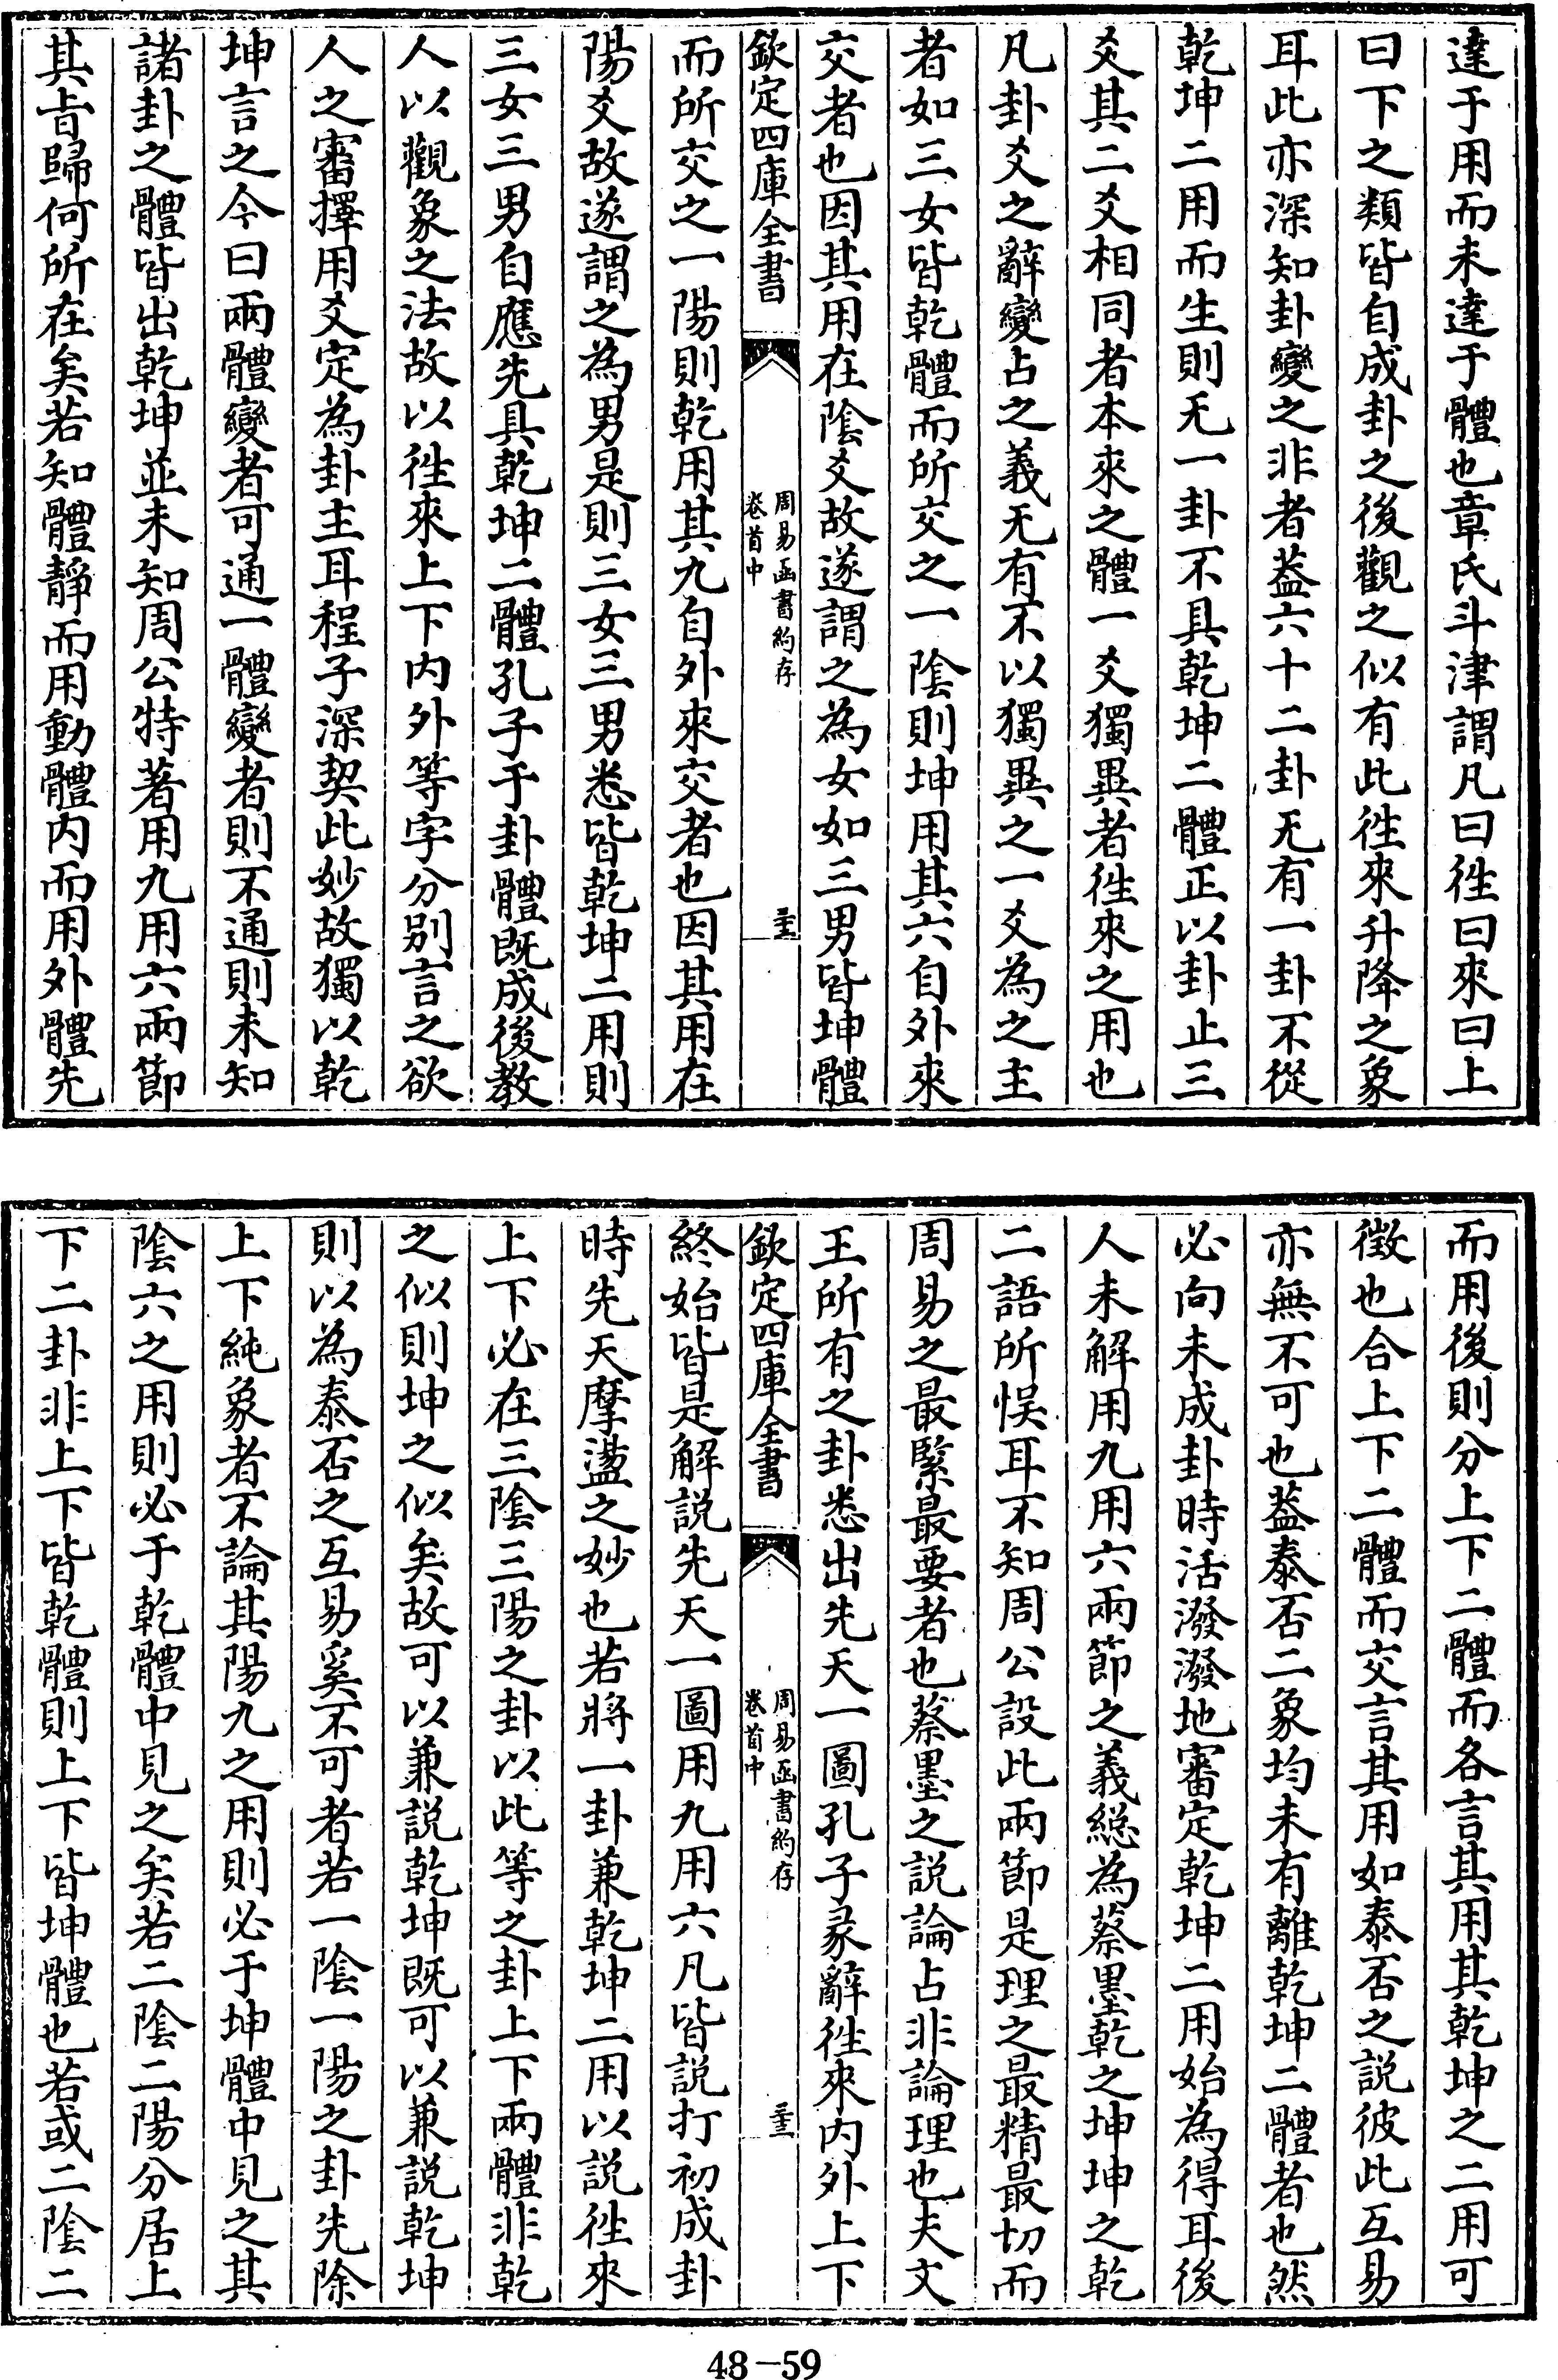 達于用而未達于體也章氏斗津謂凡曰徃曰來曰上
曰下之類皆自成卦之後觀之似有此徃來升降之象
耳此亦深知卦變之非者葢六十二卦无有一卦不從
乾坤二用而生則无一卦不具乾坤二體正以卦止三
爻其二爻相同者本來之體一爻獨異者徃來之用也
凡卦爻之辭變占之義无有不以獨異之一爻為之主
者如三女皆乾體而所交之一陰則坤用其六自外來
交者也因其用在陰爻故遂謂之為女如三男皆坤體
欽定四庫全書
周易函書約存
卷首中
而所交之一陽則乾用其九自外來交者也因其用在
陽爻故遂謂之為男是則三女三男悉皆乾坤二用則
三女三男自應先具乾坤二體孔子于卦體既成後教
人以觀象之法故以徃來上下内外等字分别言之欲
人之審擇用爻定為卦主耳程子深契此妙故獨以乾
坤言之今曰兩體變者可通一體變者則不通則未知
諸卦之體皆出乾坤並未知周公特著用九用六兩節
其㫖歸何所在矣若知體靜而用動體内而用外體先
而用後則分上下二體而各言其用其乾坤之二用可
徴也合上下二體而交言其用如泰否之説彼此互易
亦無不可也葢泰否二象均未有離乾坤二體者也然
必向未成卦時活潑潑地審定乾坤二用始為得耳後
人未解用九用六兩節之義緫為蔡墨乾之坤坤之乾
二語所悮耳不知周公設此兩節是理之最精最切而
周易之最緊最要者也蔡墨之説論占非論理也夫文
王所有之卦悉出先天一圖孔子彖辭徃來内外上下
欽定四庫全書
周易函書約存
卷首中
終始皆是解説先天一圖用九用六凡皆説打初成卦
時先天摩盪之妙也若將一卦兼乾坤二用以説徃來
上下必在三陰三陽之卦以此等之卦上下兩體非乾
之似則坤之似矣故可以兼説乾坤既可以兼説乾坤
則以為泰否之互易奚不可者若一陰一陽之卦先除
上下純象者不論其陽九之用則必于坤體中見之其
陰六之用則必于乾體中見之矣若二陰二陽分居上
下二卦非上下皆乾體則上下皆坤體也若或二陰二
48-59